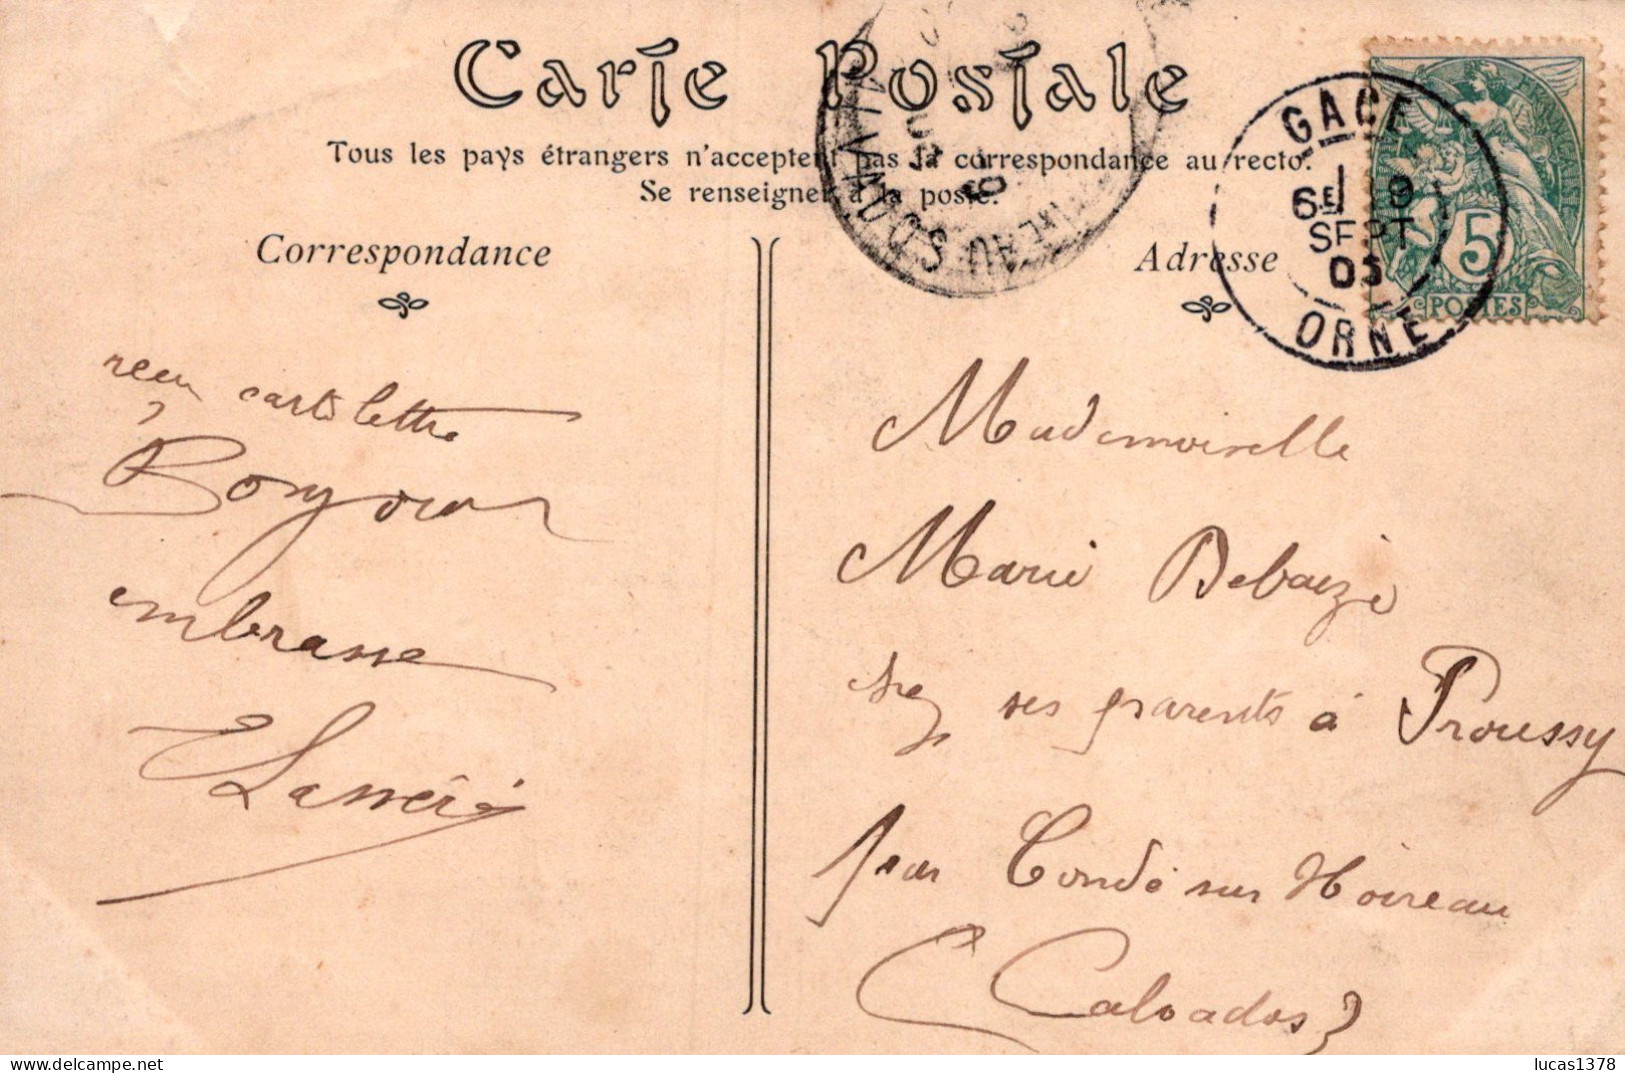 Carte Postale
Tous les pays étrangers n'acceptent pas la correspondance au recto.
Se renseigner à la poste.
Correspondance
Adresse
GACE
6E 1 9
SEPT
05
ORNE
5
POSTES
reçu carte lettre
Bonjour
embrasse
Mademoiselle
Marie Debaize
chez ses parents à Proussy
par Condé sur Noireau
(Calvados)
lucas1378